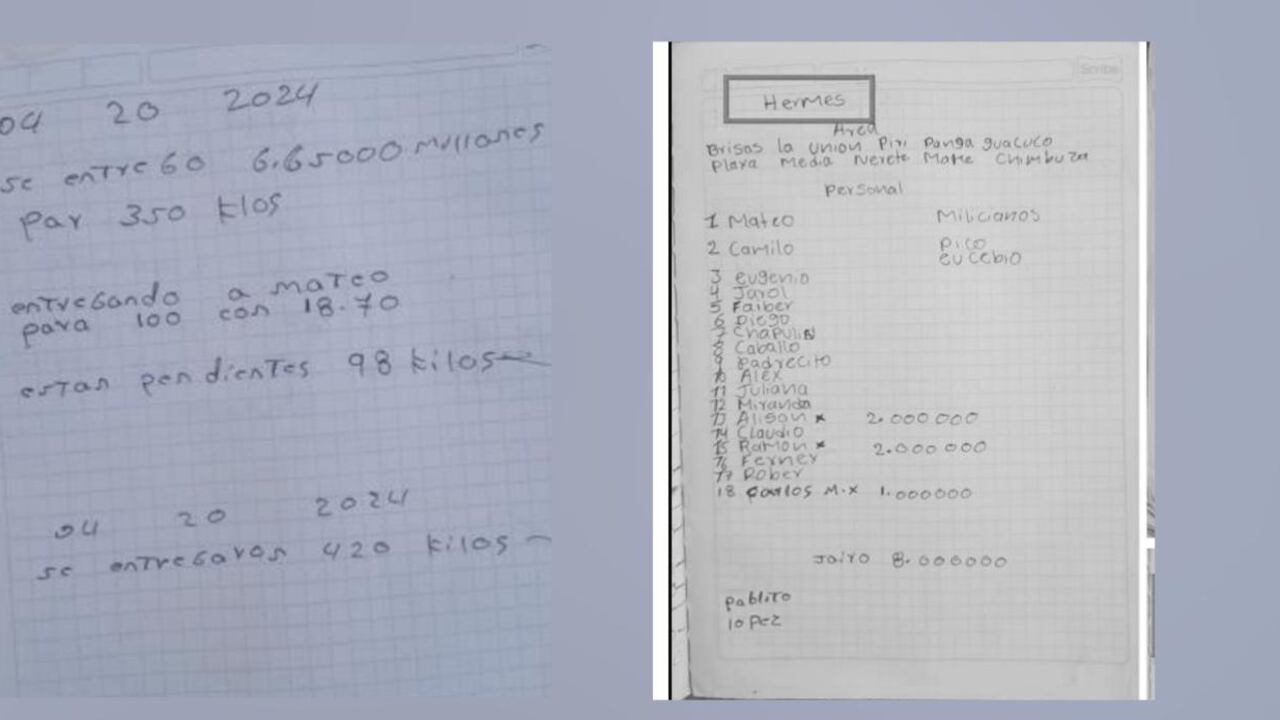 04 20 2024
se entreGo 6.65000 Millones
Par 350 klos
entreGando a mateo
para 100 con 18.70
estan pendientes 98 kilos
04 20 2024
se entreGaron 420 kilos
Scribe
Hermes
Area
Brisas la union Piri Panga guacuco
Playa Media Nerete Mame Chimbuza
Personal
1 Mateo Milicianos
2 Camilo Pico
eucebio
3 eugenio
4 Jarol
5 Faiber
6 Diego
7 Chapulin
8 Caballo
9 Padrecito
10 Alex
11 Juliana
12 Miranda
13 Alison * 2.000000
14 Claudio
15 Ramon * 2.000000
16 Ferney
17 Rober
18 Carlos M.x 1.000000
Jairo 8.000000
Pablito
lopez